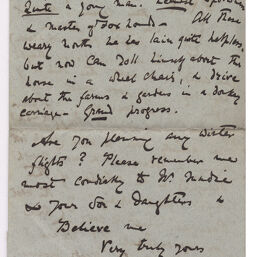 Quite a young man.
a master of Fox hounds — All these
weary months he has lain quite helpless,
but now can roll himself about the
house in a wheel chair, & drive
about the farms & gardens in a donkey
carriage — Grand progress.
Are you planning any winter
flights? Please remember me
most cordially to Mr.
& your Son & Daughters &
Believe me
Very truly yours